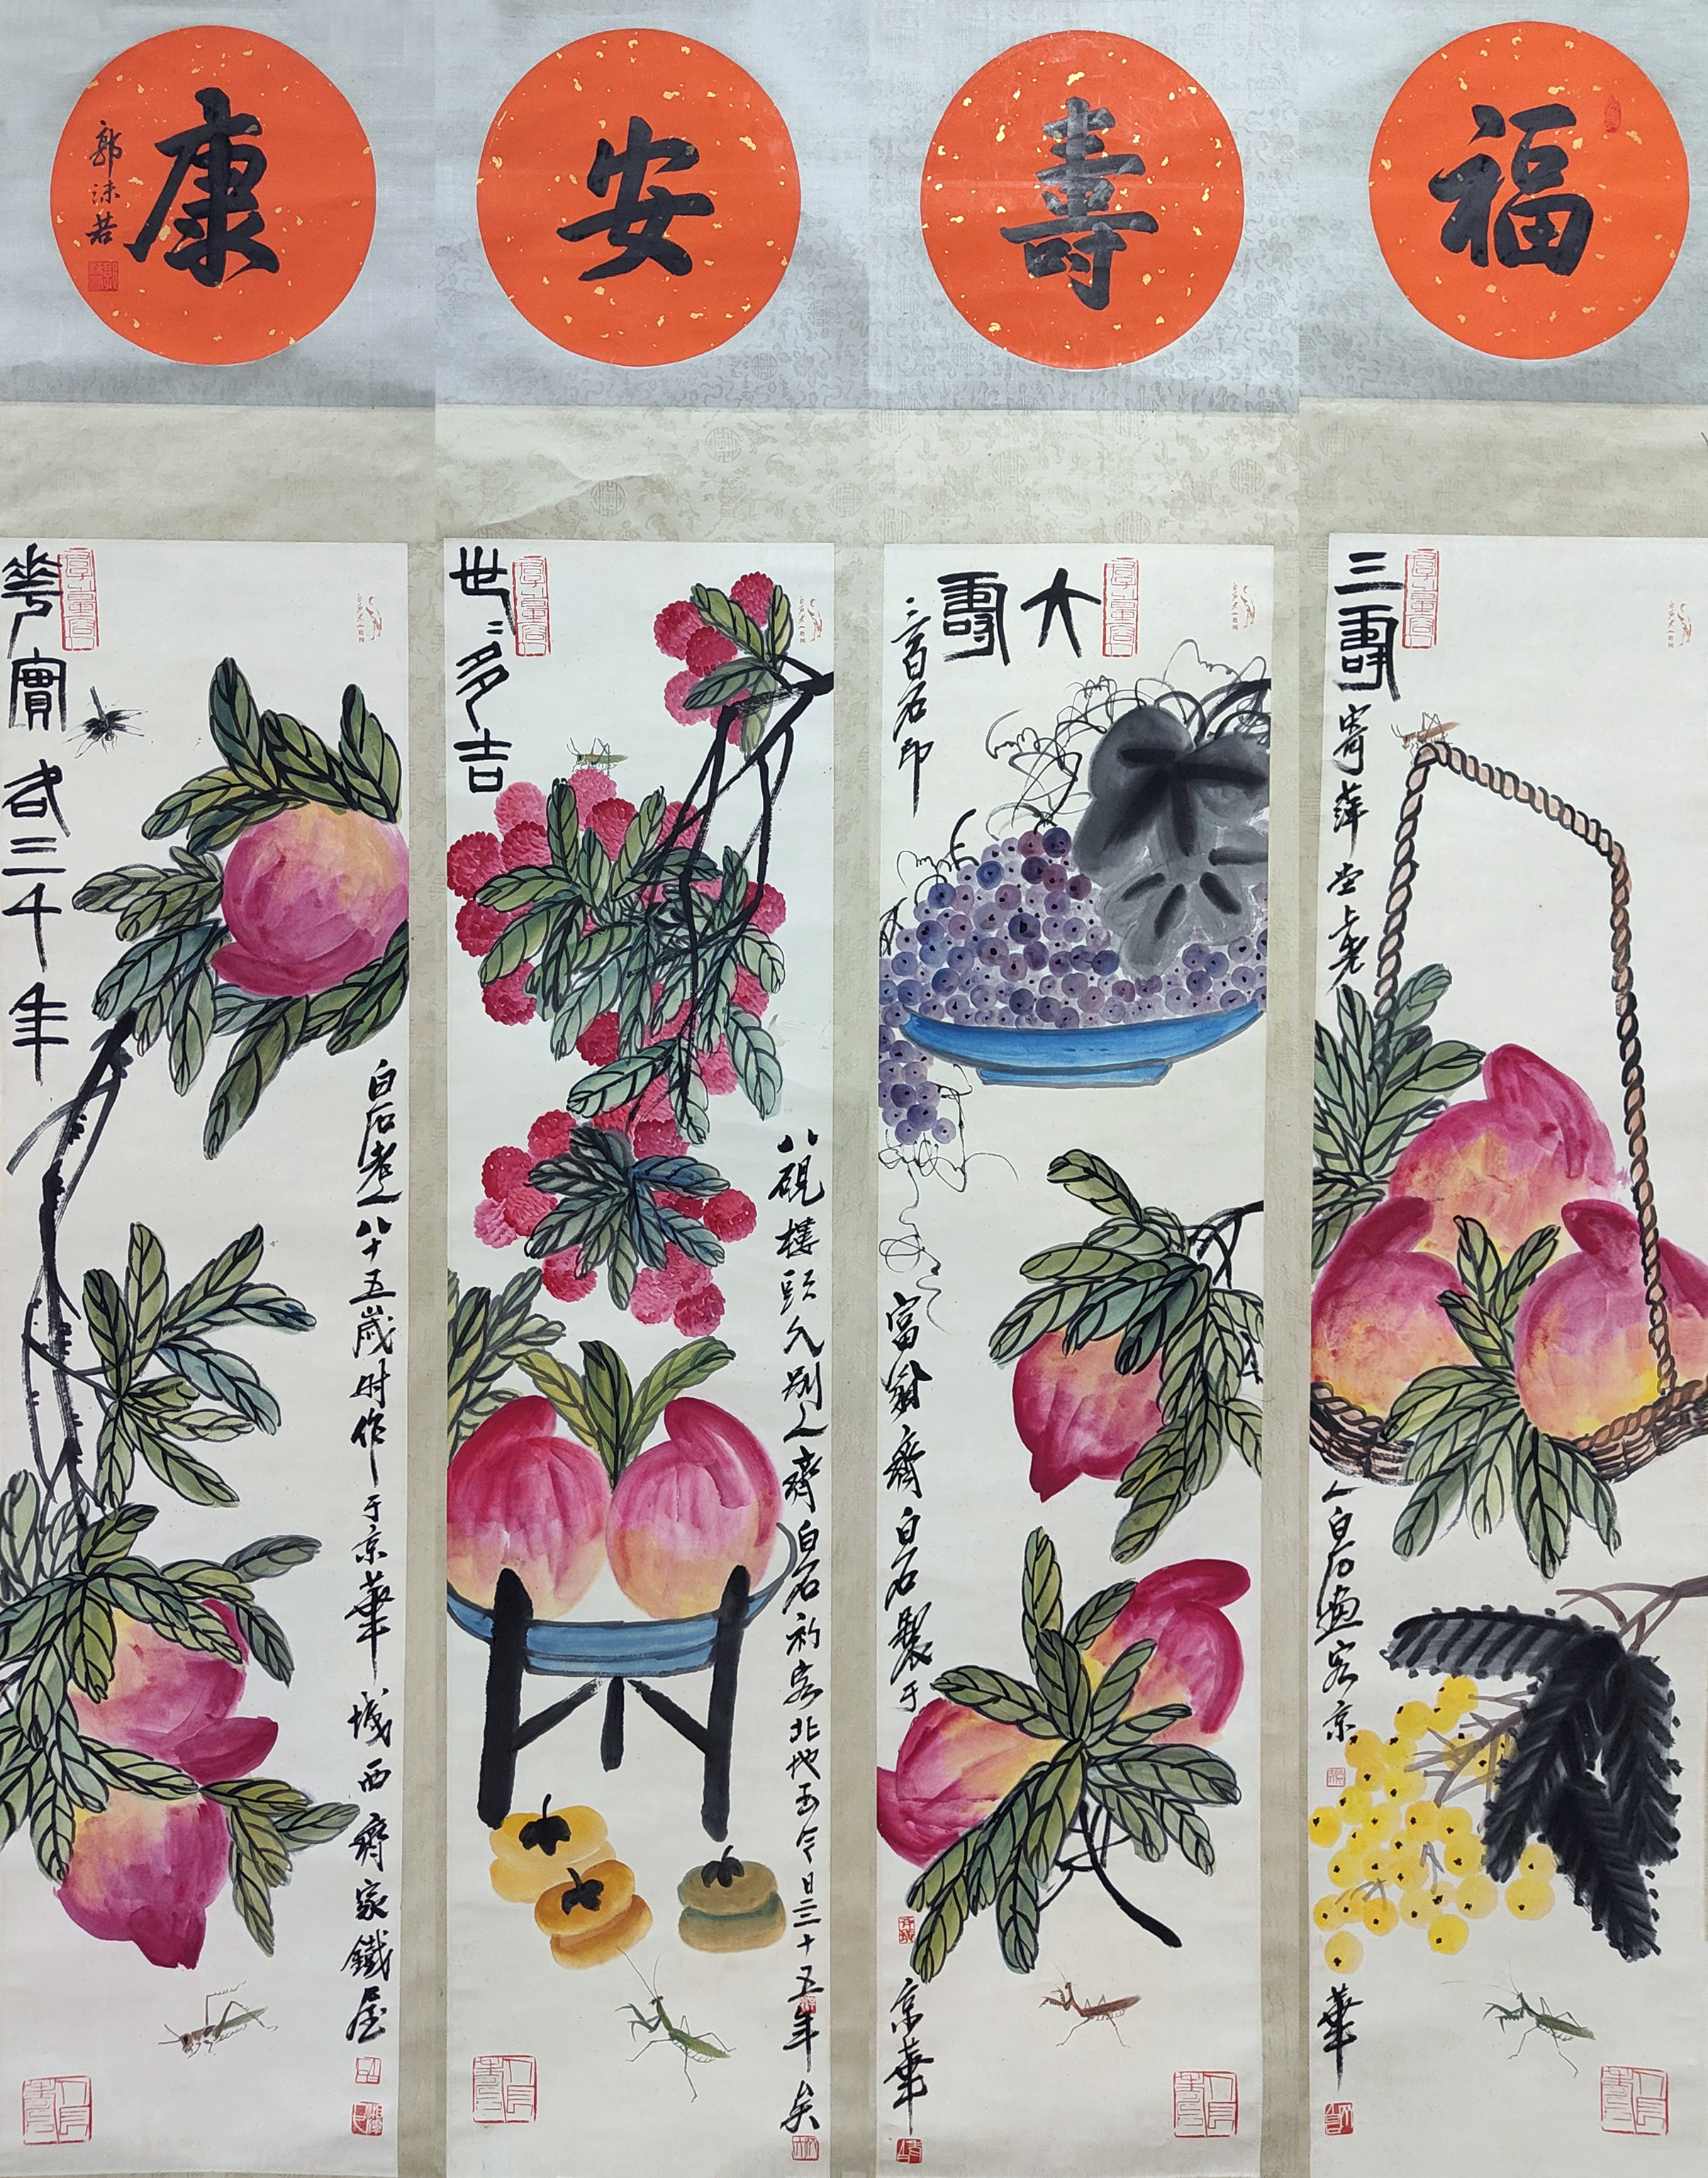 福
壽
安
康
郭沫若
三壽
寄萍堂上老
人白石画客京
華
大壽
三百石印
富翁齊白石製于
京華
世世多吉
八硯樓頭久別人齊白石初客北地至今日三十五年矣
花實各三千年
白石老人八十五歲時作于京華城西齊家鐵屋